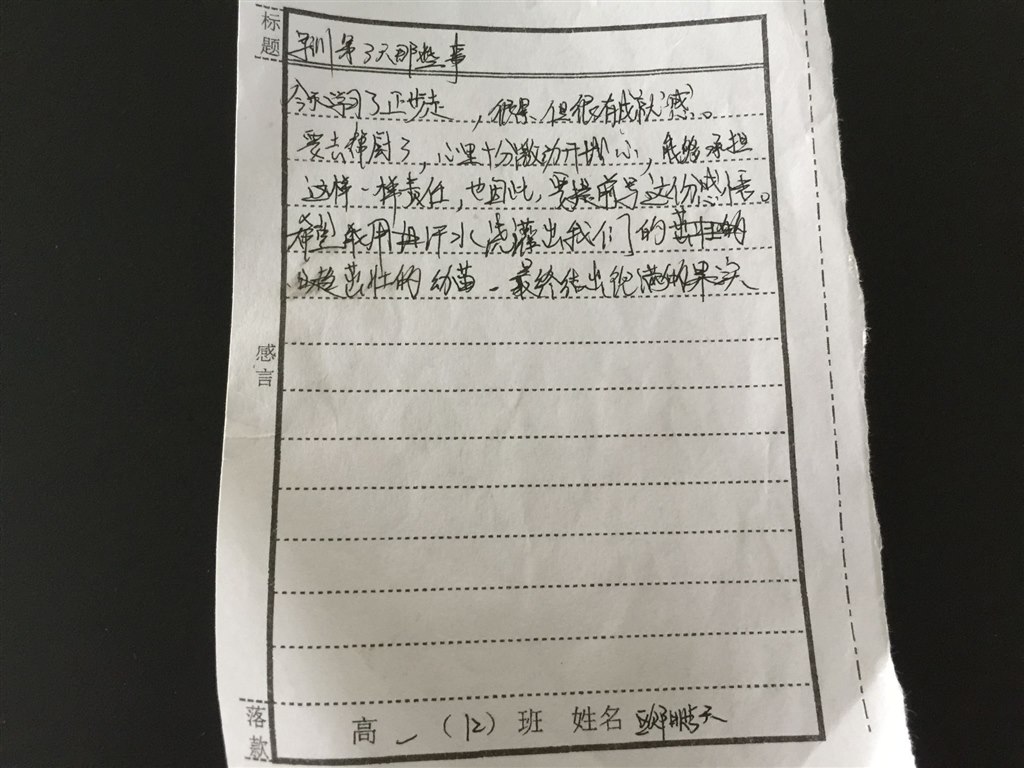 标题
军训第3天那些事
今天学习了正步走，很累但很有成就感。
要去帮厨了，心里十分激动开心，能够承担
这样一样责任，也因此，要提前写这份感悟。
希望能用汗水浇灌出我们的
茁壮的幼苗，最终结出饱满的果实
感言
落款
高一（12）班 姓名